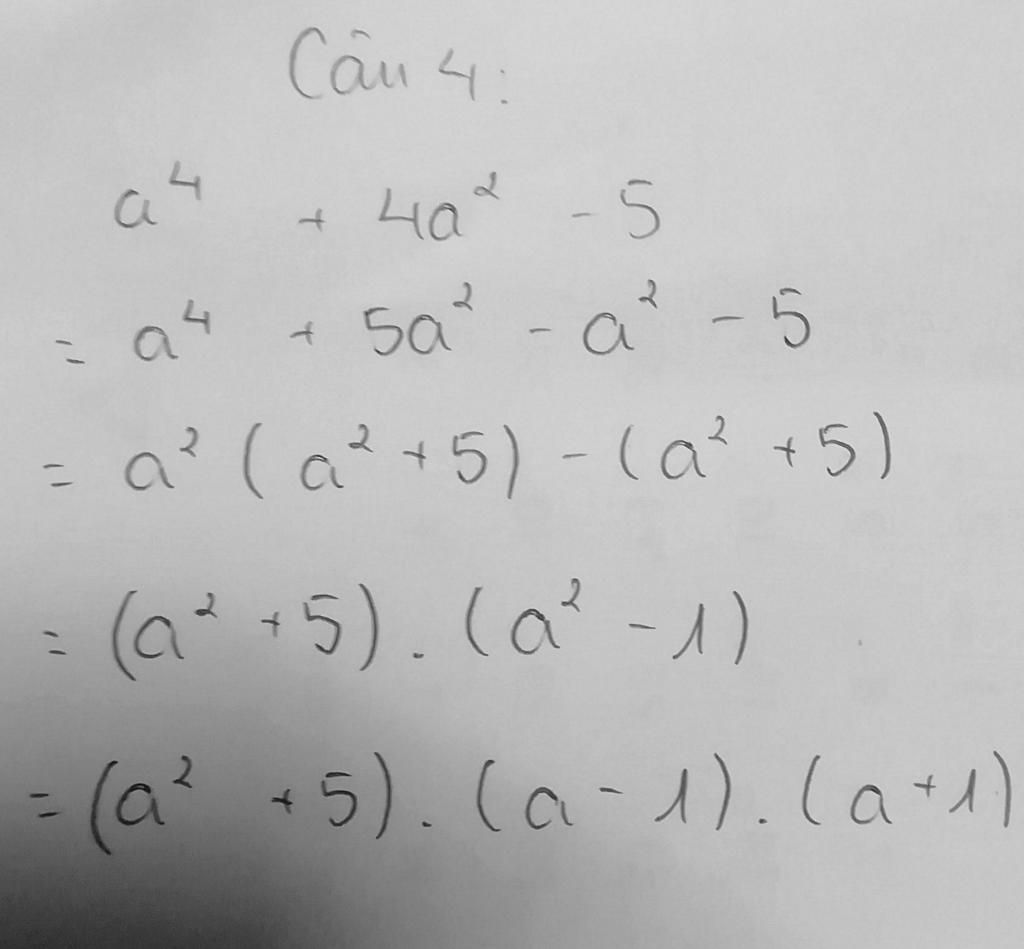 Câu 4:
a⁴ + 4a² - 5
= a⁴ + 5a² - a² - 5
= a² (a² + 5) - (a² + 5)
= (a² + 5) . (a² - 1)
= (a² + 5) . (a - 1) . (a + 1)